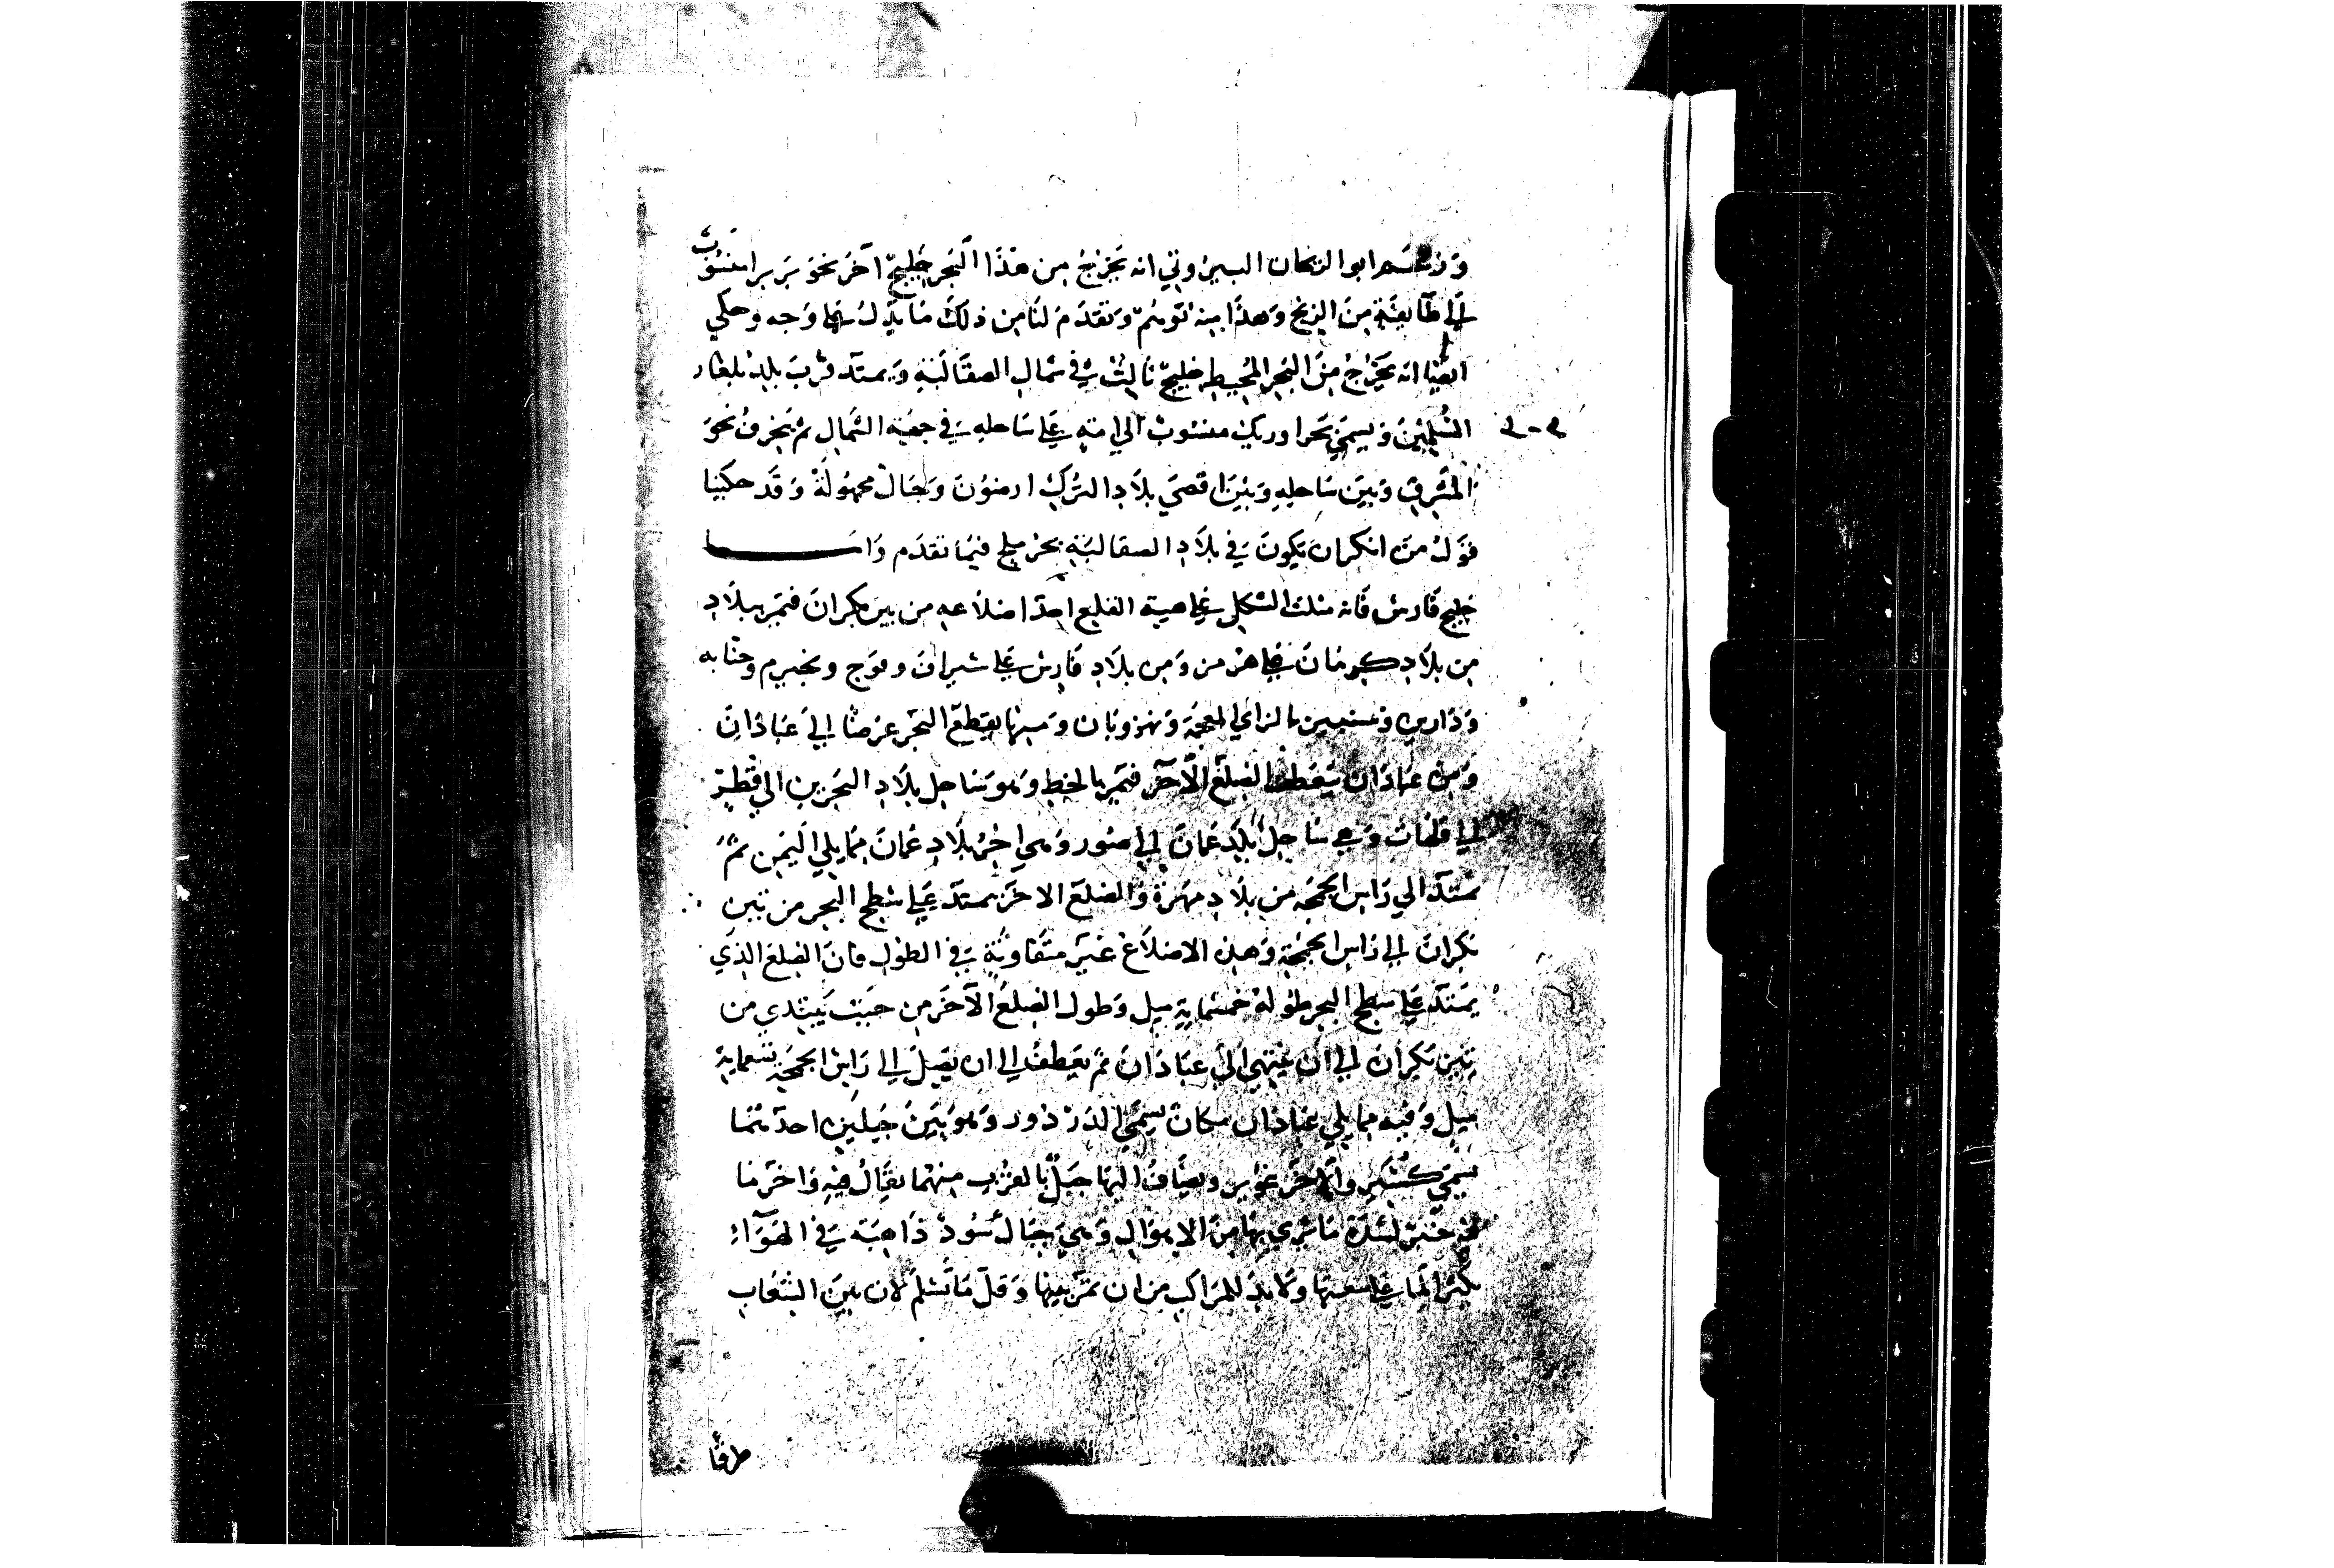 وزعم ابو الريحان البيروني انه يخرج من هذا البحر خليج آخر نحو بربرا منسوب
الى طآيفة من الزنج وهذا منه توهم وتقدم لنا من ذلك ما يدل وجه وحكي
ايضا انه يخرج من البحر المحيط خليج ثالث في شمال الصقالبة ويمتد قرب بلد بلغار
المسلمين ويسمي بحر اورنك منسوب الي امة على ساحله في جهة الشمال ثم ينحرف نحو
المشرق وبين ساحله وبين اقصي بلاد الترك ارضون وجبال مجهولة وقد حكينا
قول من انكر ان يكون في بلاد الصقالبة بحر ملح فيما تقدم واما
خليج فارس فانه مثلث الشكل على هيية القلع احد اضلاعه من تيز مكران فيمر ببلاد
من بلاد كرمان على هرمز ومن بلاد فارس على سيراف وتوج ونجيرم وجنابه
ودارين وسينيز بالزاي المعجمة ومهروبان ومنها يقطع البحر عرضا الى عبادان
ومن عبادان ينعطف الضلع الآخر فيمر بالخط وهو ساحل بلاد البحرين الي قطر
الى قلهات وهي ساحل بلد عمان الى صور وهي اخر بلاد عمان مما يلي اليمن ثم
يمتد الي راس الجمجمة من بلاد مهرة والضلع الاخر يمتد على سطح البحر من تيز
مكران الى راس الجمجمة وهذه الاضلاع غير متفاوتة في الطول فان الضلع الذي
يمتد على سطح البحر طوله خمسماية ميل وطول الضلع الآخر من حيث يبتدي من
تيز مكران الى ان ينتهي الى عبادان ثم يعطف الى ان يصل الى راس الجمجمة تسعماية
ميل وفيه مما يلي عبادان مكان يسمي الدردور وهو بين جبلين احدهما
يسمي كسير والآخر عوير ويضاف اليها جبل بالقرب منهما يقال فيه واخر ما
فيه خير لشدة ما يري بها من الاهوال وهي جبال سود ذاهبة في الهوآء
يكسر الما على شعبها ولابد للمراكب من ان تمر بينها وقل ما تسلم لان بين الشعاب
طرقا